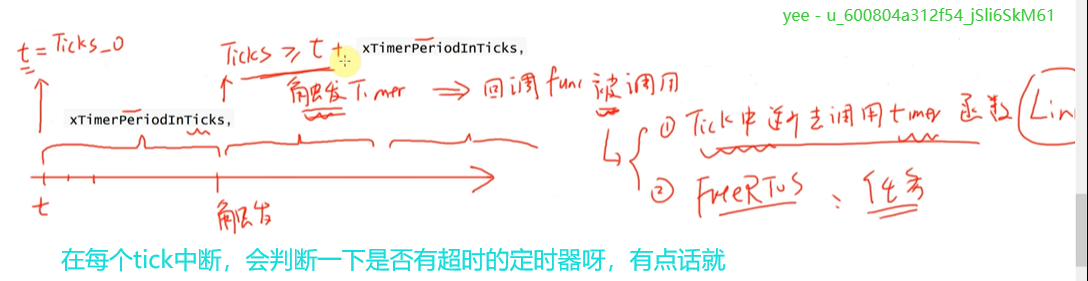 yee - u_600804a312f54_jSli6SkM61
t = Ticks_0
Ticks ≥ t + xTimerPeriodInTicks,
触发Timer ⇒ 回调func被调用
xTimerPeriodInTicks,
① Tick中 去调用timer 函数 (Lin
② FreeRTOS : 任务
t
触发
在每个tick中断，会判断一下是否有超时的定时器呀，有点话就